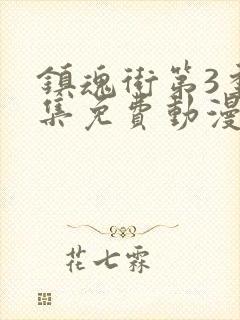 鎮魂街第3季
集免費動漫
花七霖